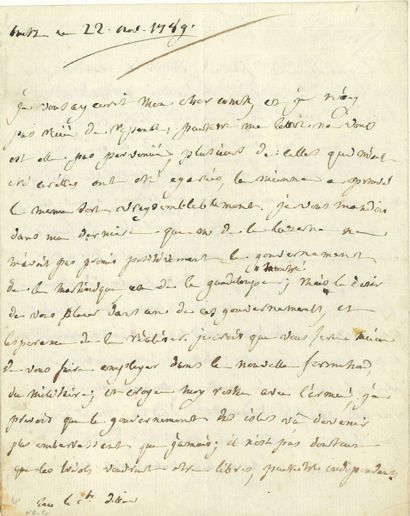 ce 22 1789.
je vous ay ecrit mon cher comte, et je n'ay
pas reçu de reponse, peutetre ma lettre ne vous
est elle pas parvenüe, plusieurs de celles qui m'ont
été ont été egarées, la mienne a
le meme sort vraysemblablement. je vous mandois
dans ma derniere que mr de la luzerne ne
m'avoit pas promis positivement le gouvernement
de la martinique de la guadeloupe; mais le desir
de vous placer dans un de ces gouvernements, et
l'esperance de le realiser. je crois que vous
de vous faire employer dans la nouvelle formation
du militaire; et croyes moy rester avec l'armée, je
prevois que le gouvernement des isles va devenir
plus embarrassant que jamais; il n'est pas douteux
que les voudront etre libres, peutetre independans